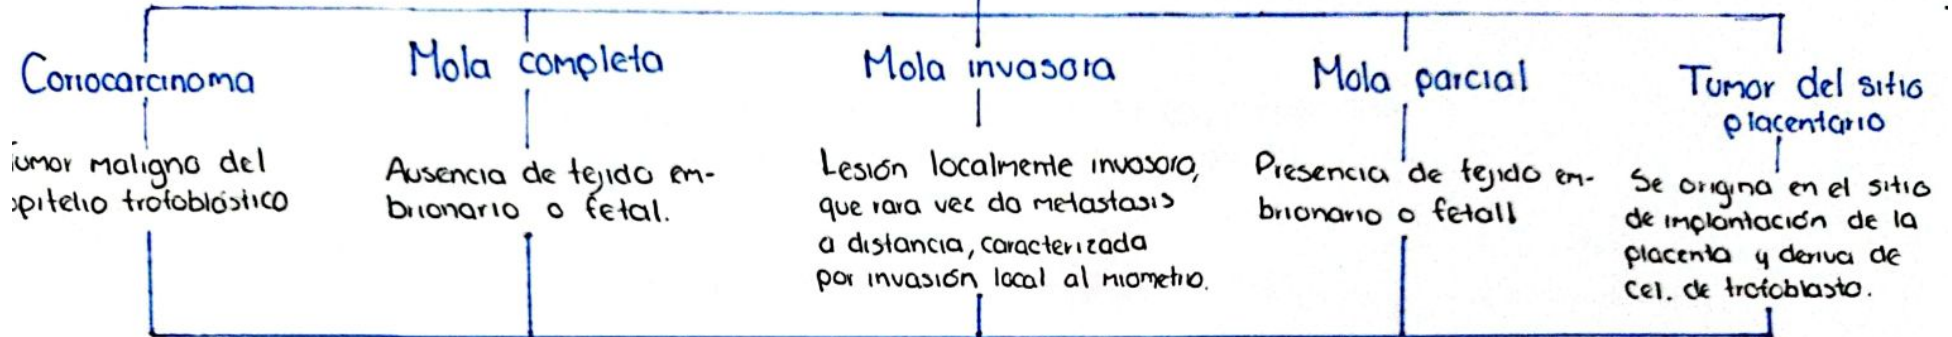 Coriocarcinoma
umor maligno del
pitelio trofoblástico
Mola completa
Ausencia de tejido em-
brionario o fetal.
Mola invasora
Lesión localmente invasora,
que rara vez da metastasis
a distancia, caracterizada
por invasión local al miometrio.
Mola parcial
Presencia de tejido em-
brionario o fetall
Tumor del sitio
placentario
Se origina en el sitio
de implantación de la
placenta y deriva de
cel. de trofoblasto.